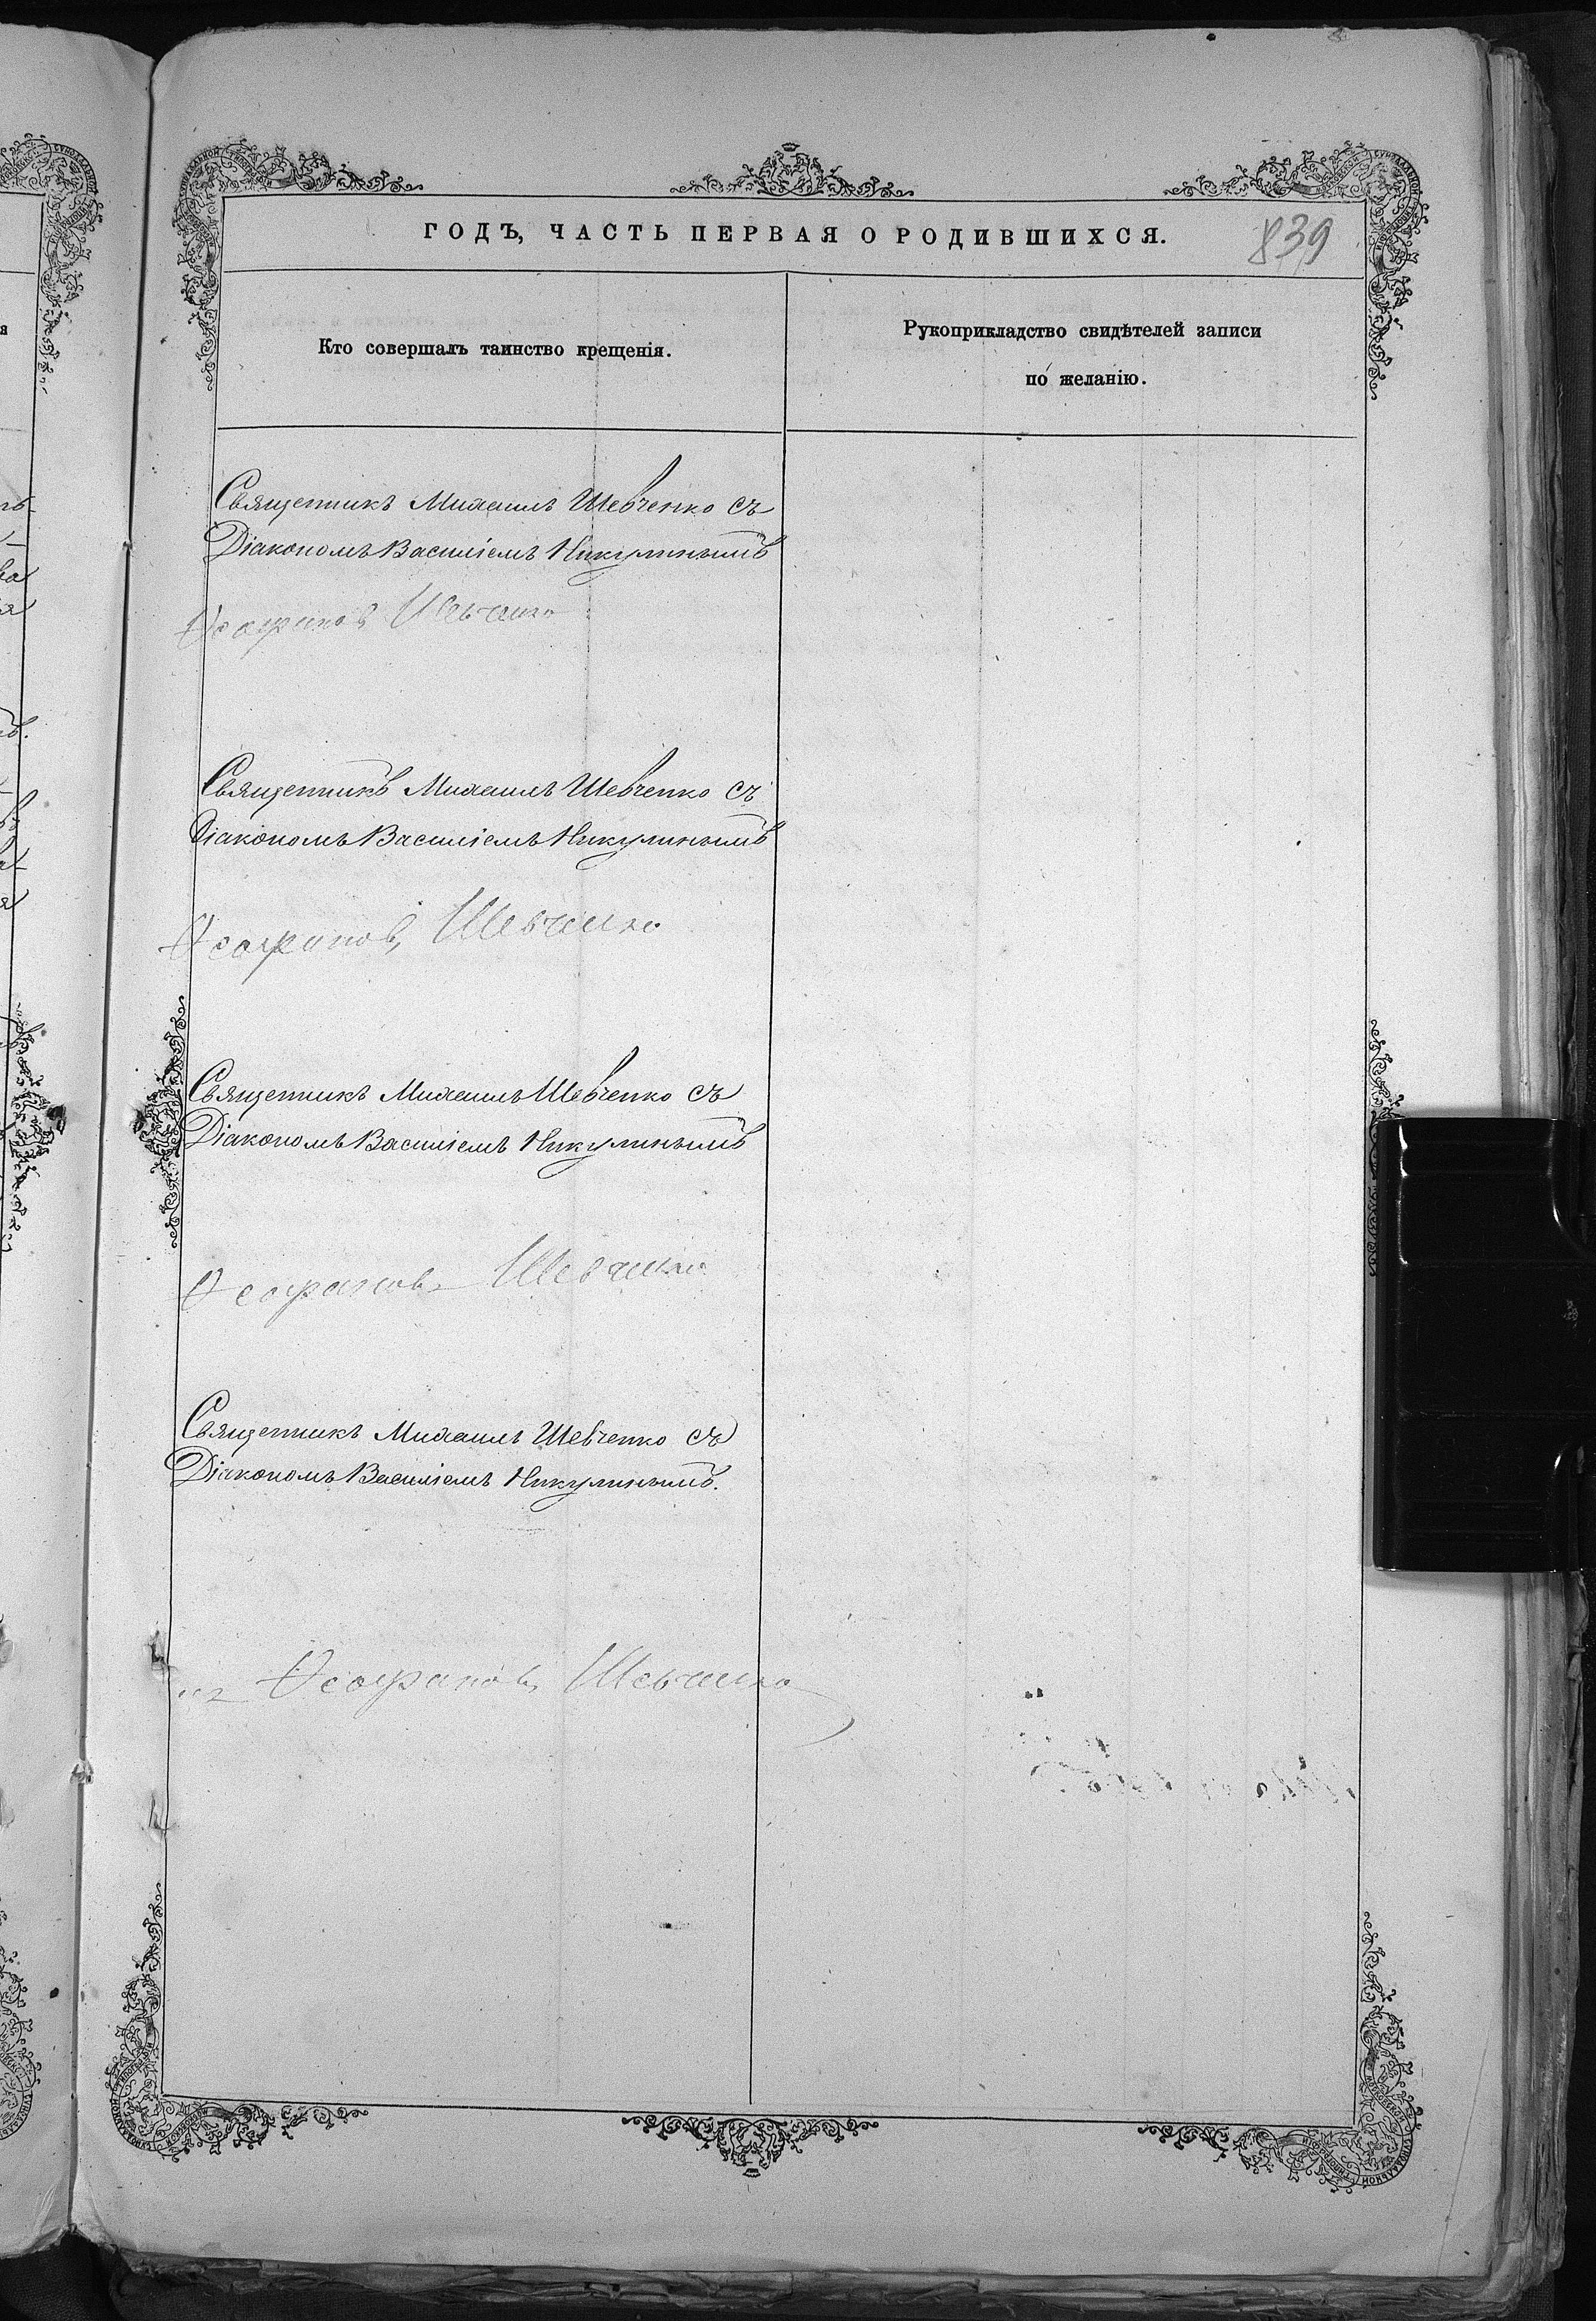 ГОДЪ, ЧАСТЬ ПЕРВАЯ О РОДИВШИХСЯ.
839
Кто совершалъ таинство крещенія.
Рукоприкладство свидѣтелей записи
по желанію.
Священникъ Михаилъ Шевченко съ
Діакономъ Василіемъ Никулинымъ
Ѳеофановъ Шевченко
Священникъ Михаилъ Шевченко съ
Діакономъ Василіемъ Никулинымъ
Ѳеофановъ Шевченко
Священникъ Михаилъ Шевченко съ
Діакономъ Василіемъ Никулинымъ
Ѳеофановъ Шевченко
Священникъ Михаилъ Шевченко съ
Діакономъ Василіемъ Никулинымъ.
Ѳеофановъ Шевченко